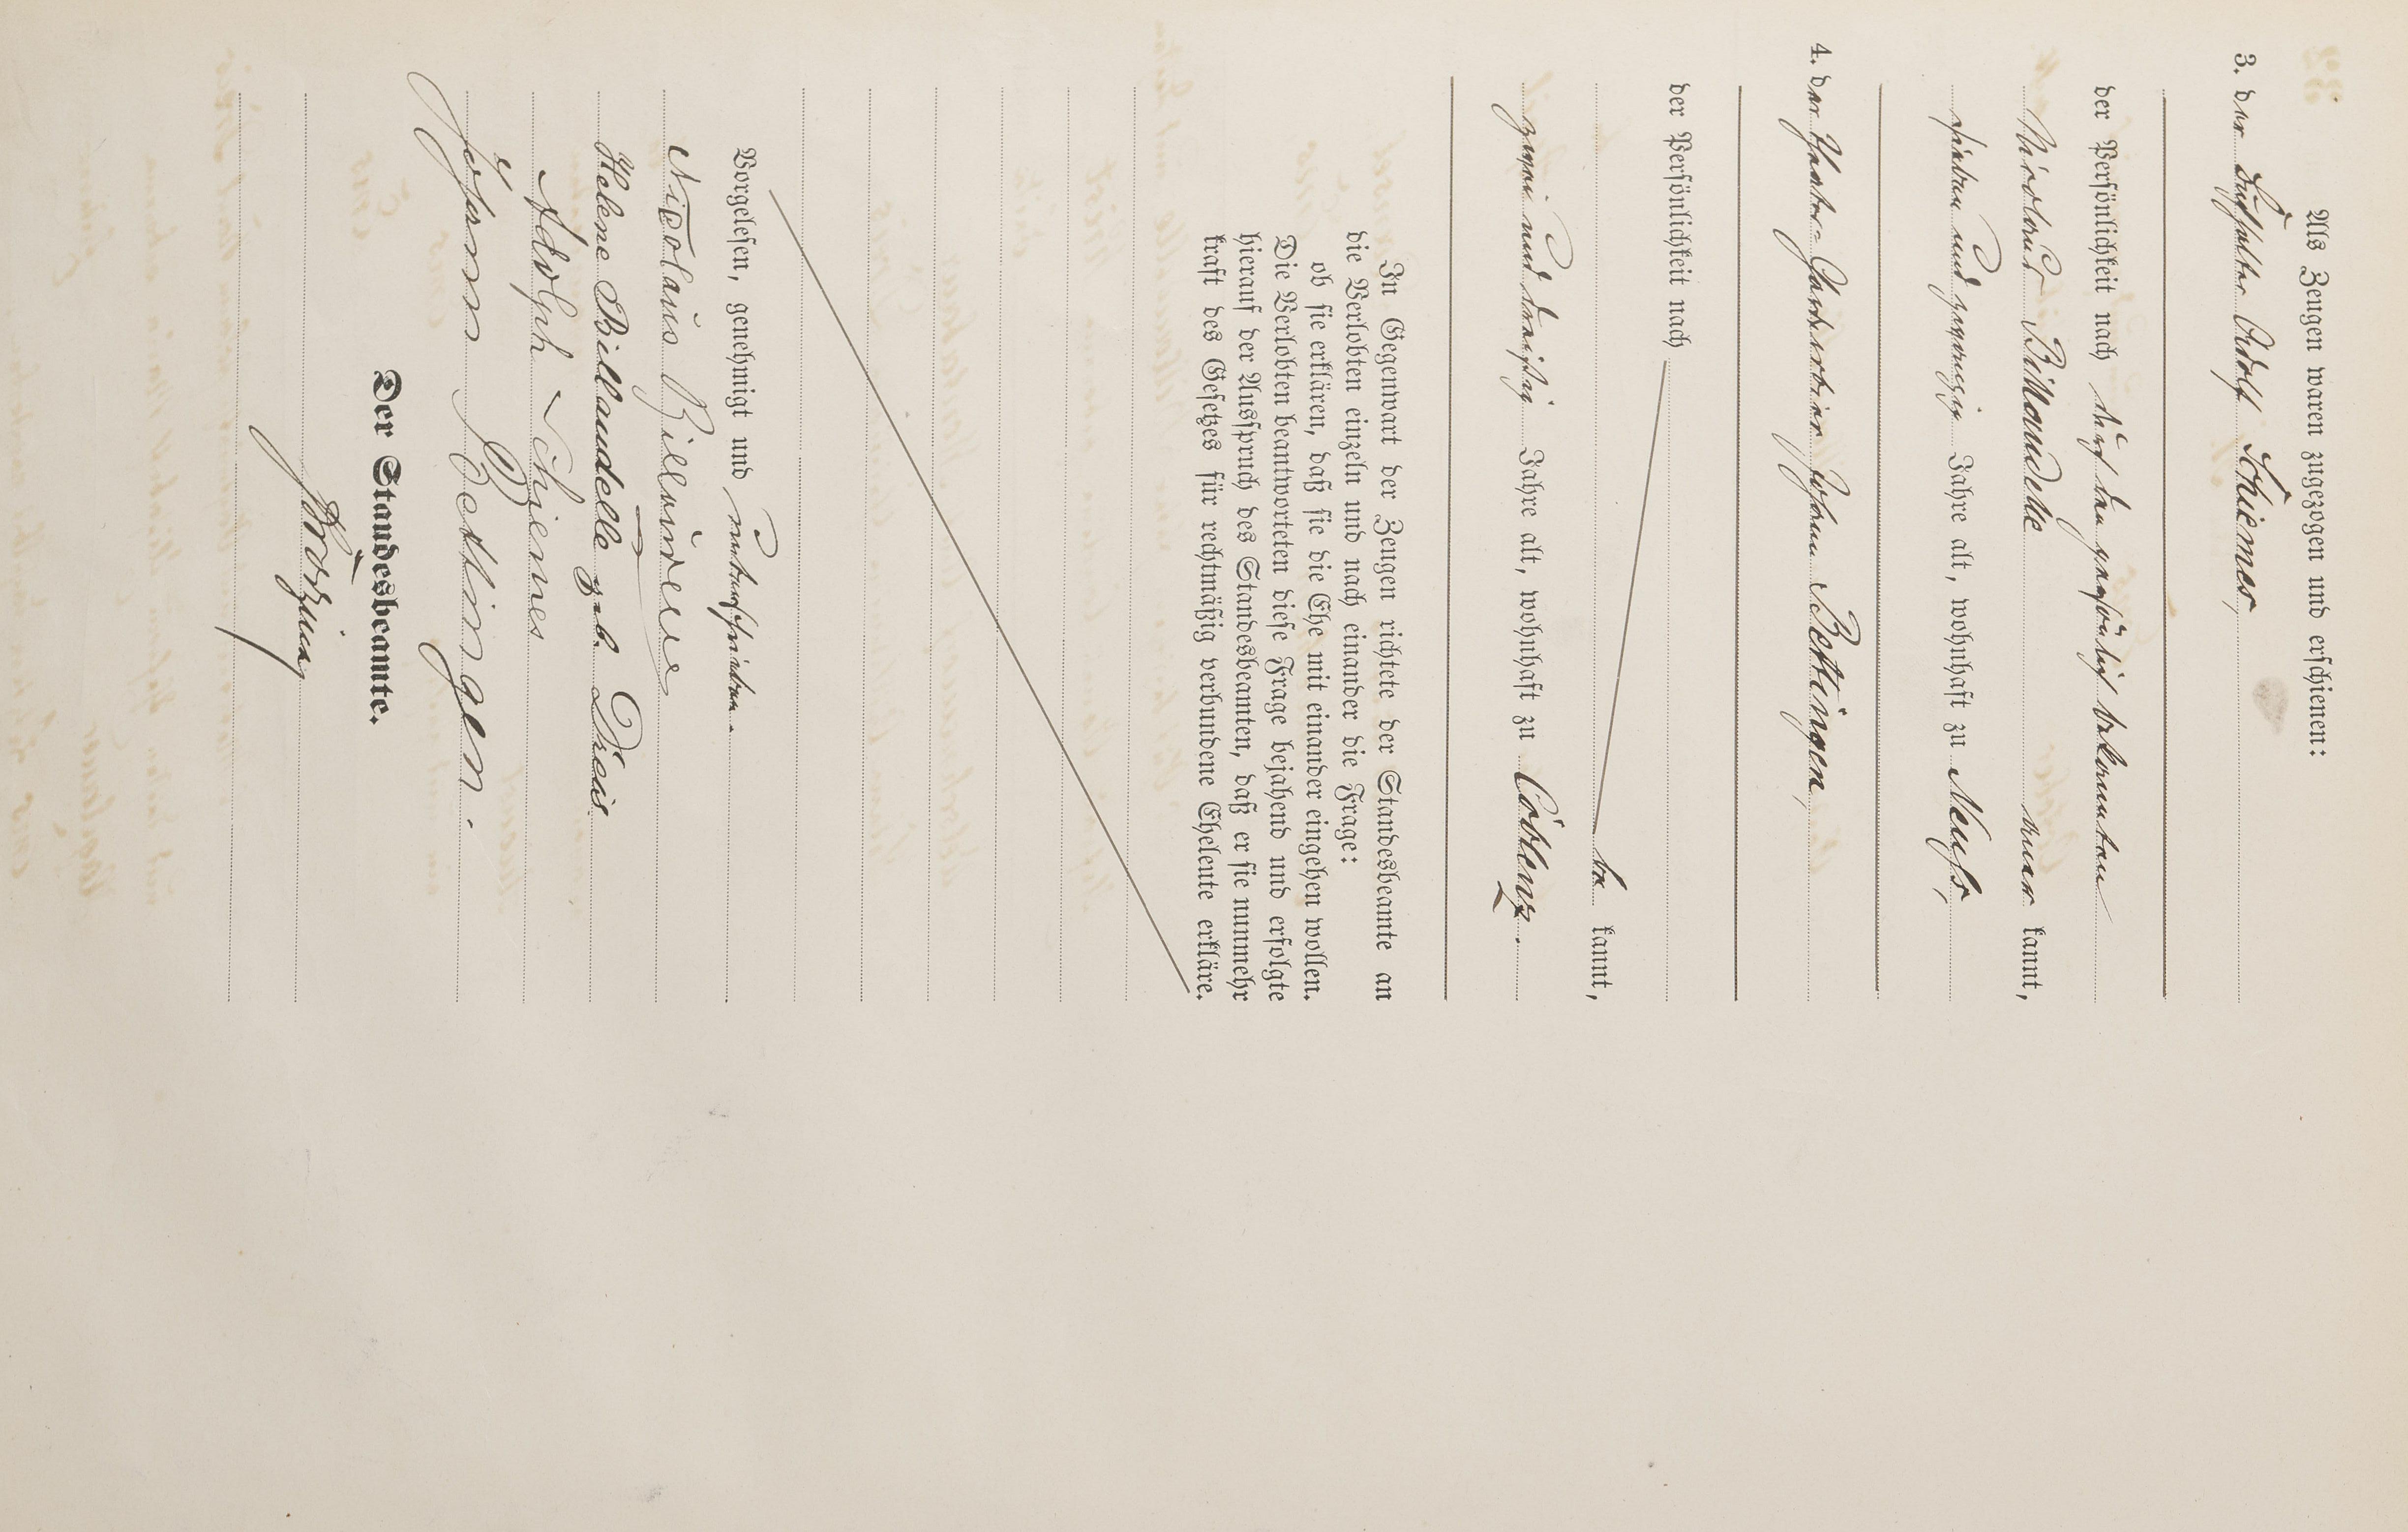 Als Zeugen waren zugezogen und erschienen:
3. der Buchhalter Adolf Schiemes,
der Persönlichkeit nach durch den persönlich bekannten
Nicolaus Billaudelle aner kannt,
sieben und zwanzig Jahre alt, wohnhaft zu Neuss,
4. der Johann Bettingen,
der Persönlichkeit nach
be kannt,
zwei und dreißig Jahre alt, wohnhaft zu Coblenz.
In Gegenwart der Zeugen richtete der Standesbeamte an
die Verlobten einzeln und nach einander die Frage:
ob sie erklären, daß sie die Ehe mit einander eingehen wollen.
Die Verlobten beantworteten diese Frage bejahend und erfolgte
hierauf der Ausspruch des Standesbeamten, daß er sie nunmehr
kraft des Gesetzes für rechtmäßig verbundene Eheleute erkläre.
Vorgelesen, genehmigt und unterschrieben.
Nicolaus
Helene Billaudelle geb. Dreis
Adolph Schiemes
Johann Bettingen.
Der Standesbeamte.